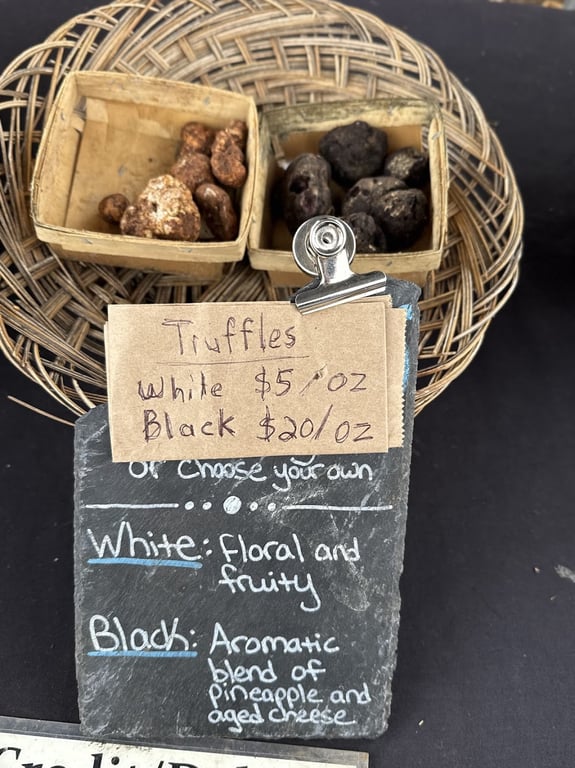 Truffles
White $5/oz
Black $20/oz
or choose your own
White: Floral and
fruity
Black: Aromatic
blend of
pineapple and
aged cheese